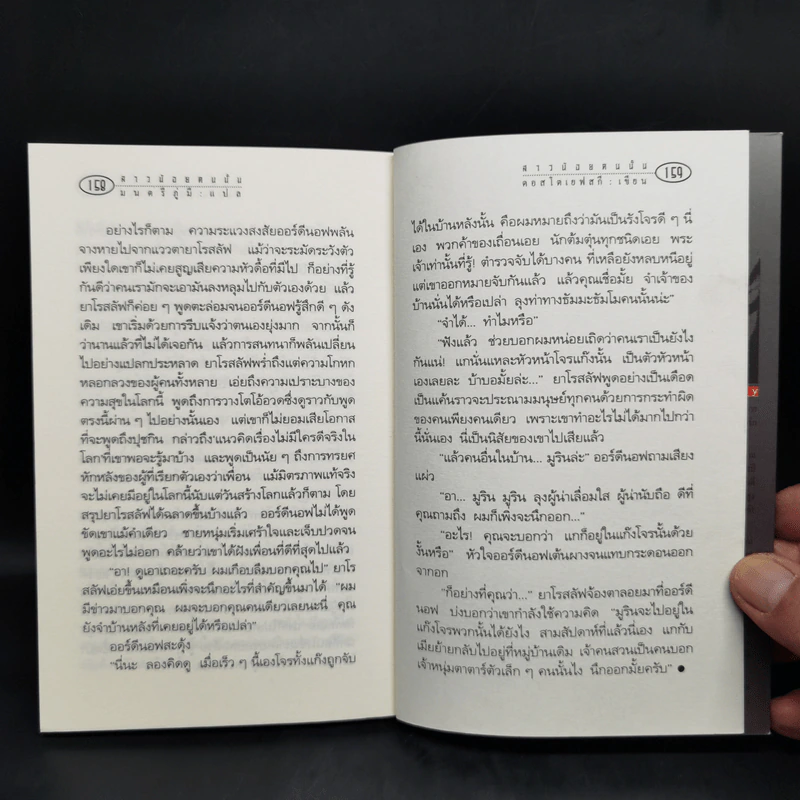 158
สาวน้อยคนนั้น
มนตรี ภู่มี : แปล
อย่างไรก็ตาม ความระแวงสงสัยออร์ดีนอฟพลัน
จางหายไปจากแววตายาโรสลัฟ แม้ว่าจะระมัดระวังตัว
เพียงใดเขาก็ไม่เคยสูญเสียความหัวดื้อที่มีไป ก็อย่างที่รู้
กันดีว่าคนเรามักจะเอามันลงหลุมไปกับตัวเองด้วย แล้ว
ยาโรสลัฟก็ค่อย ๆ พูดตะล่อมจนออร์ดีนอฟรู้สึกดี ๆ ดัง
เดิม เขาเริ่มด้วยการรีบแจ้งว่าตนเองยุ่งมาก จากนั้นก็
ว่านานแล้วที่ไม่ได้เจอกัน แล้วการสนทนาก็พลันเปลี่ยน
ไปอย่างแปลกประหลาด ยาโรสลัฟพร่ำถึงแต่ความโกหก
หลอกลวงของผู้คนทั้งหลาย เอ่ยถึงความเปราะบางของ
ความสุขในโลกนี้ พูดถึงการวางโตโอ้อวดซึ่งดูราวกับพูด
ตรงนี้ผ่าน ๆ ไปอย่างนั้นเอง แต่เขาก็ไม่ยอมเสียโอกาส
ที่จะพูดถึงปุชกิน กล่าวถึงแนวคิดเรื่องไม่มีใครดีจริงใน
โลกที่เขาพอจะรู้มาบ้าง และพูดเป็นนัย ๆ ถึงการทรยศ
หักหลังของผู้ที่เรียกตัวเองว่าเพื่อน แม้มิตรภาพแท้จริง
จะไม่เคยมีอยู่ในโลกนี้นับแต่วันสร้างโลกแล้วก็ตาม โดย
สรุปยาโรสลัฟได้ฉลาดขึ้นบ้างแล้ว ออร์ดีนอฟไม่ได้พูด
ขัดเขาแม้คำเดียว ชายหนุ่มเริ่มเศร้าใจและเจ็บปวดจน
พูดอะไรไม่ออก คล้ายว่าเขาได้ฝังเพื่อนที่ดีที่สุดไปแล้ว
“อา! ดูเอาเถอะครับ ผมเกือบลืมบอกคุณไป” ยาโร
สลัฟเอ่ยขึ้นเหมือนเพิ่งจะนึกอะไรที่สำคัญขึ้นมาได้ “ผม
มีข่าวมาบอกคุณ ผมจะบอกคุณคนเดียวเลยนะนี่ คุณ
ยังจำบ้านหลังที่เคยอยู่ได้หรือเปล่า”
ออร์ดีนอฟสะดุ้ง
“นี่นะ ลองคิดดู เมื่อเร็ว ๆ นี้เองโจรทั้งแก๊งถูกจับ
สาวน้อยคนนั้น
ดอสโตเยฟสกี : เขียน
159
ได้ในบ้านหลังนั้น คือผมหมายถึงว่ามันเป็นรังโจรดี ๆ นี่
เอง พวกค้าของเถื่อนเอย นักต้มตุ๋นทุกชนิดเอย พระ
เจ้าเท่านั้นที่รู้! ตำรวจจับได้บางคน ที่เหลือยังหลบหนีอยู่
แต่เขาออกหมายจับกันแล้ว แล้วคุณเชื่อมั้ย จำเจ้าของ
บ้านนั่นได้หรือเปล่า ลุงท่าทางธัมมะธัมโมคนนั้นน่ะ”
“จำได้... ทำไมหรือ”
“ฟังแล้ว ช่วยบอกผมหน่อยเถิดว่าคนเราเป็นยังไง
กันแน่! แกนั่นแหละหัวหน้าโจรแก๊งนั้น เป็นตัวหัวหน้า
เองเลยละ บ้าบอมั้ยล่ะ...” ยาโรสลัฟพูดอย่างเป็นเดือด
เป็นแค้นราวจะประณามมนุษย์ทุกคนด้วยการกระทำผิด
ของคนเพียงคนเดียว เพราะเขาทำอะไรไม่ได้มากไปกว่า
นี้นั่นเอง นี่เป็นนิสัยของเขาไปเสียแล้ว
“แล้วคนอื่นในบ้าน... มูรินล่ะ” ออร์ดีนอฟถามเสียง
แผ่ว
“อา... มูริน มูริน ลุงผู้น่าเลื่อมใส ผู้น่านับถือ ดีที่
คุณถามถึง ผมก็เพิ่งจะนึกออก...”
“อะไร! คุณจะบอกว่า แกก็อยู่ในแก๊งโจรนั้นด้วย
งั้นหรือ” หัวใจออร์ดีนอฟเต้นผางจนแทบกระดอนออก
จากอก
“ก็อย่างที่คุณว่า...” ยาโรสลัฟจ้องตาลอยมาที่ออร์ดี
นอฟ บ่งบอกว่าเขากำลังใช้ความคิด “มูรินจะไปอยู่ใน
แก๊งโจรพวกนั้นได้ยังไง สามสัปดาห์ที่แล้วนี่เอง แกกับ
เมียย้ายกลับไปอยู่ที่หมู่บ้านเดิม เจ้าคนสวนเป็นคนบอก
เจ้าหนุ่มตาตาร์ตัวเล็ก ๆ คนนั้นไง นึกออกมั้ยครับ” ●
y